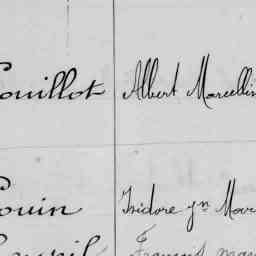 ouillot Albert Marcellin
ouin Isidore jn Mar